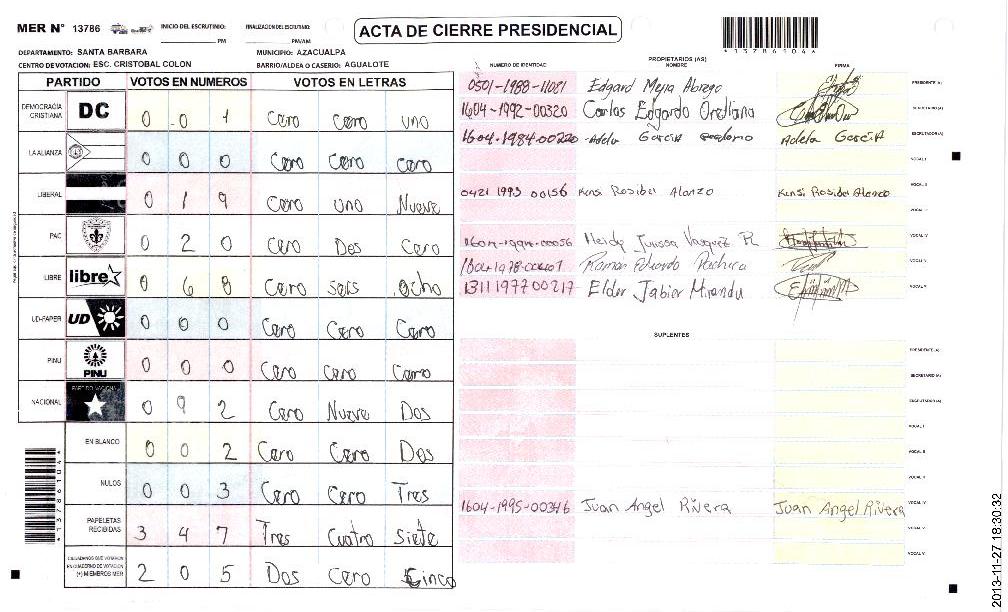 MER N° 13786
INICIO DEL ESCRUTINIO: PM
FINALIZACION DEL ESCRUTINIO: PM/AM
ACTA DE CIERRE PRESIDENCIAL
*1378610 4*
DEPARTAMENTO: SANTA BARBARA
MUNICIPIO: AZACUALPA
CENTRO DE VOTACION: ESC. CRISTOBAL COLON
BARRIO/ALDEA O CASERIO: AGUALOTE
PARTIDO VOTOS EN NUMEROS VOTOS EN LETRAS
DEMOCRACIA CRISTIANA DC 0 0 1 Cero Cero uno
LA ALIANZA 0 0 0 Cero Cero Cero
LIBERAL 0 1 9 Cero uno Nueve
PAC 0 2 0 Cero Dos Cero
LIBRE libre 0 6 8 Cero seis ocho
UD-FAPER UD 0 0 0 Cero Cero Cero
PINU PINU 0 0 0 Cero Cero Cero
NACIONAL PARTIDO NACIONAL 0 9 2 Cero Nueve Dos
EN BLANCO 0 0 2 Cero Cero Dos
NULOS 0 0 3 Cero Cero Tres
PAPELETAS RECIBIDAS 3 4 7 Tres Cuatro Siete
CIUDADANOS QUE VOTARON EN CUADERNO DE VOTACION (+) MIEMBROS MER 2 0 5 Dos Cero Cinco
PROPIETARIOS (AS)
NUMERO DE IDENTIDAD NOMBRE FIRMA
0501-1988-11081 Edgard Mejia Abrego PRESIDENTE (A)
1604-1992-00320 Carlos Edgardo Orellana SECRETARIO (A)
1604-1984-00220 Adela Garcia Adela Garcia ESCRUTADOR (A)
VOCAL I
0421 1993 00156 Kensi Rosibel Alonzo Kensi Rosibel Alonzo VOCAL II
VOCAL III
Heidy VOCAL IV
Ramon Eduardo Pacheco VOCAL V
1311197700217 Elder Jabier Miranda
SUPLENTES
PRESIDENTE (A)
SECRETARIO (A)
ESCRUTADOR (A)
VOCAL I
VOCAL II
VOCAL III
1604-1995-00346 Juan Angel Rivera Juan Angel Rivera VOCAL IV
VOCAL V
2013-11-27 18:30:32